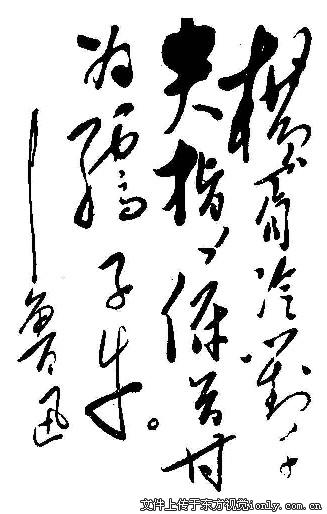 横眉冷對千
夫指、俯首甘
为孺子牛。
——鲁迅
文件上传于东方视觉ionly.com.cn